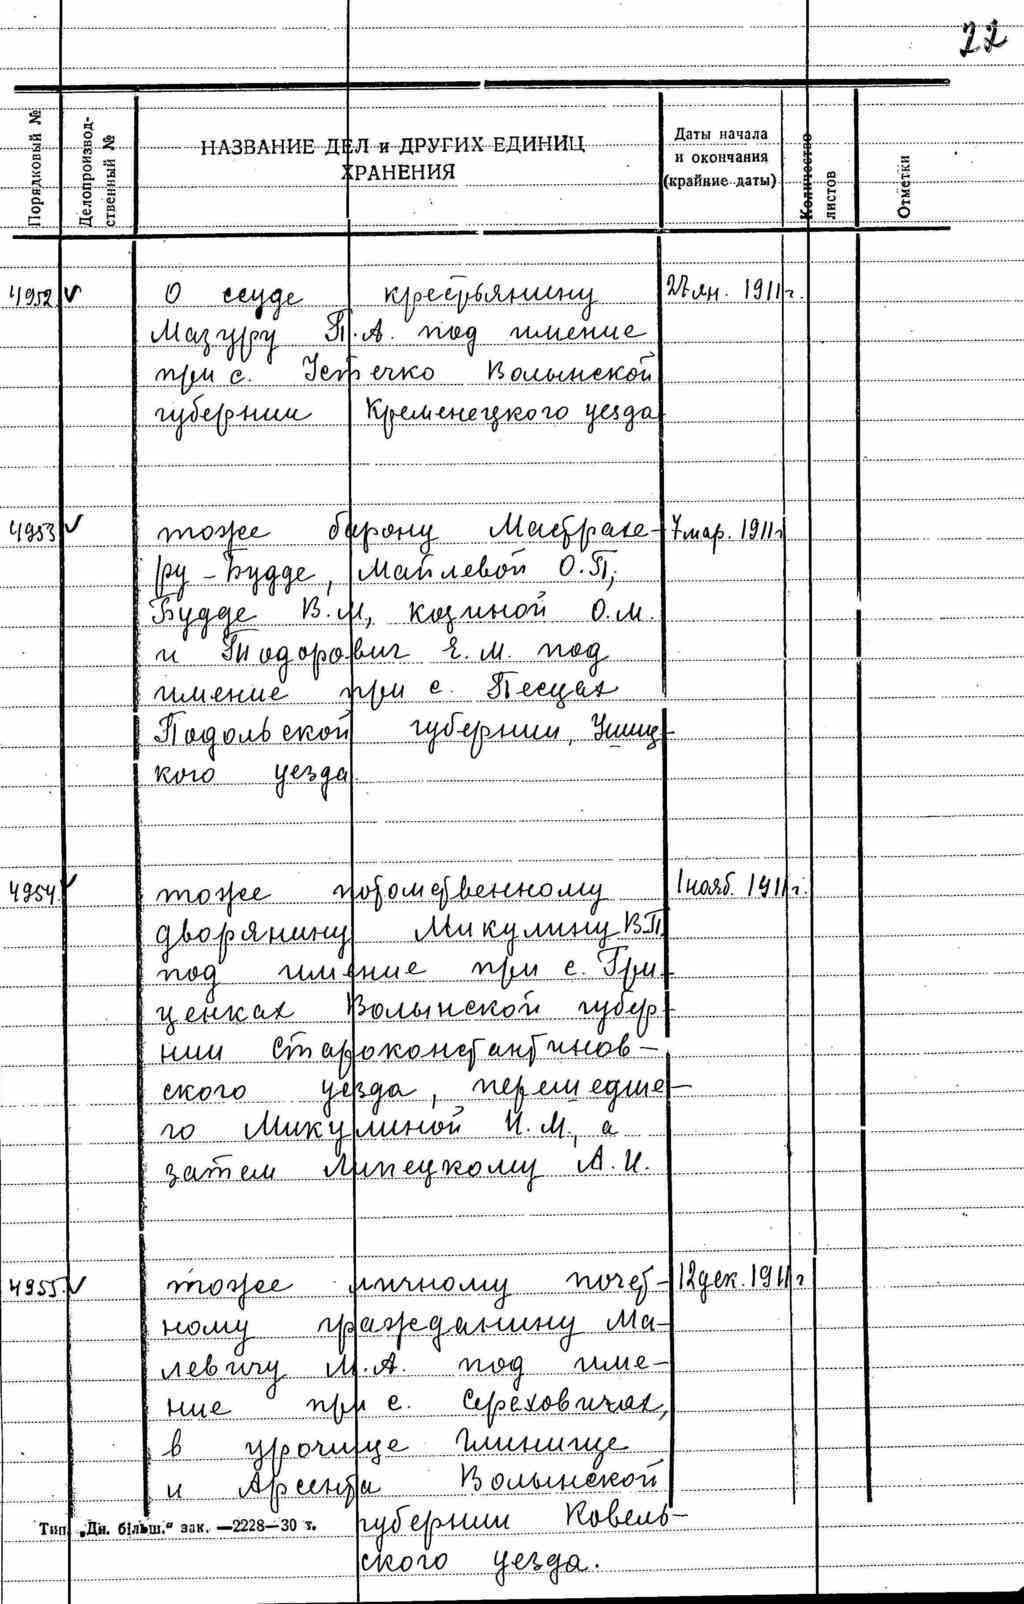 22
Порядковый №
Делопроизвод-
ственный №
НАЗВАНИЕ ДЕЛ и ДРУГИХ ЕДИНИЦ
ХРАНЕНИЯ
Даты начала
и окончания
(крайние даты)
Количество
листов
Отметки
4952. ✓ О ссуде крестьянину 27 ян. 1911 г.
Мазуру П.А. под имение
при с. Устечко Волынской
губернии Кременецкого уезда
4953 ✓ тоже барону Местрахе- 7 мар. 1911 г
ру-Будде, Майлевой О.П.,
Будде В.М., Козиной О.М.
и Тодорович Е.М. под
имение при с. Песцах
Подольской губернии, Ушиц-
кого уезда
4954. ✓ тоже потомственному 1 нояб. 1911 г.
дворянину Микулину В.П.
под имение при с. Гри-
ценках Волынской губер-
нии Староконстантинов-
ского уезда, перешедше-
го Микулиной И.М., а
затем Липецкому А.И.
4955. ✓ тоже личному почет- 12 дек. 1911 г
ному гражданину Ма-
левичу М.А. под име-
ние при с. Сереховичах,
в урочище Глинище
и Арсента Волынской
губернии Ковель-
ского уезда.
Тип. „Дн. більш." зак. —2228—30 т.